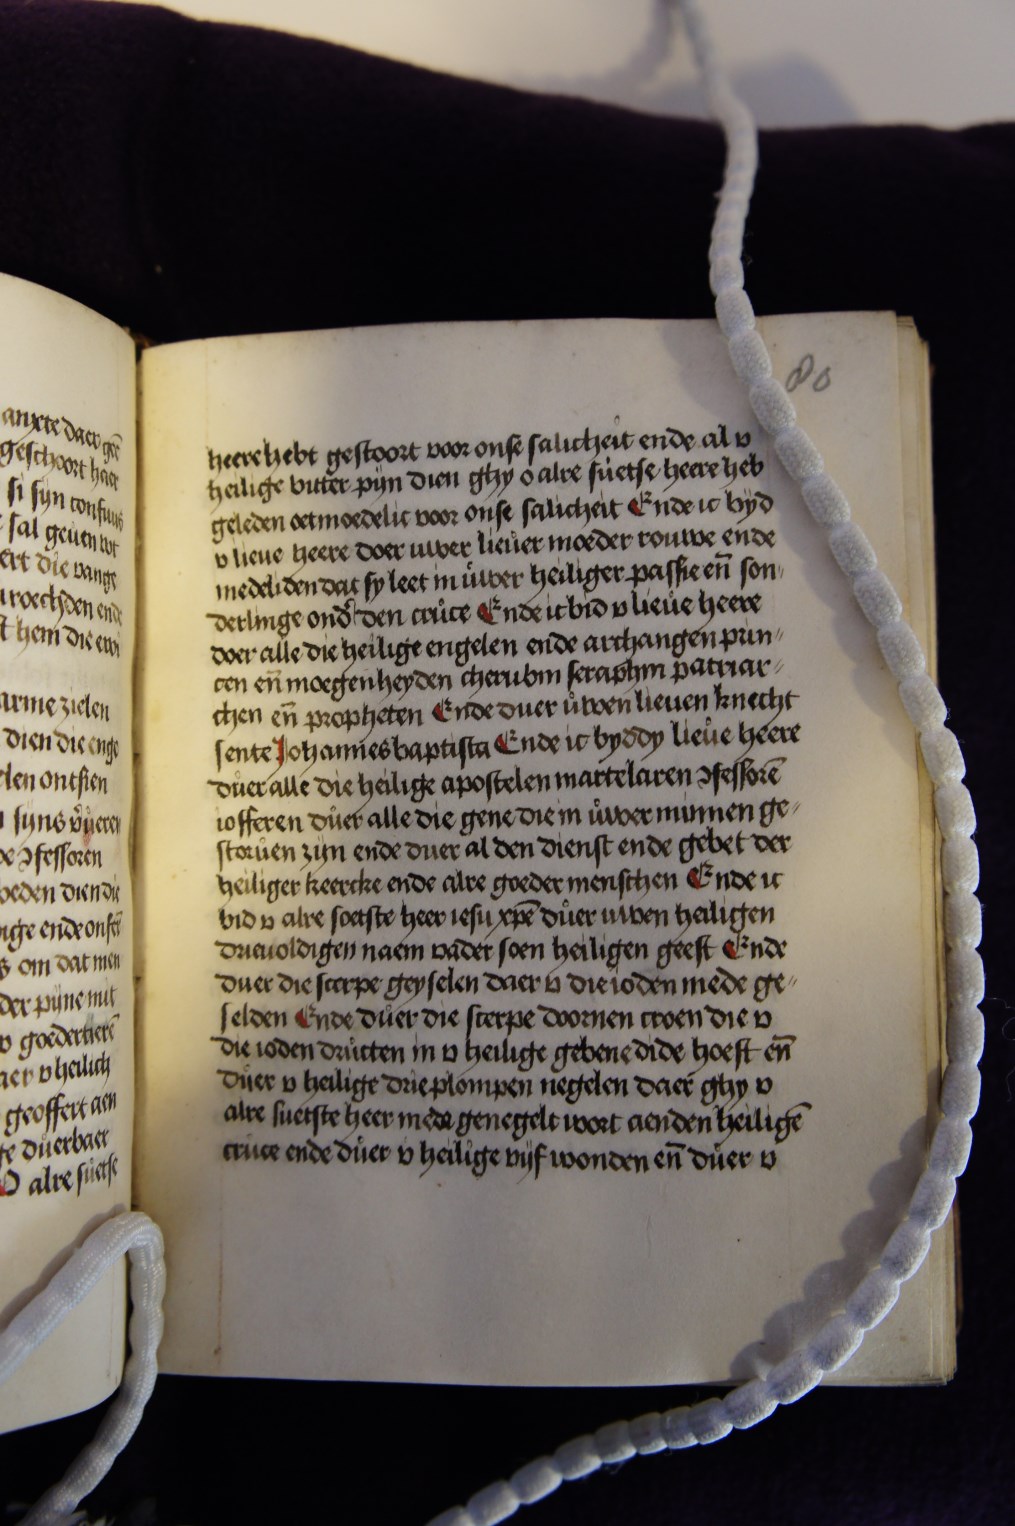 anxte daer geē
geschoort haer
si syn confuus
sal geuen wt
ert die vange
uroechden ende
t hem die ewi
arme zielen
dien die enge
elen ontsien
syns vůeren
de ꝯfessoren
oeden dien die
ige ende onfeē
s om dat men
der pyne mit
v goedertierē
aer v heilich
geoffert aen
ge duerbaer
O alre sůetse
80
heere hebt gestoort voor onse salicheit ende al v
heilige bitter pijn dien ghy o alre sůetse heere heb
geleden oetmoedelic voor onse salicheit Ende ic byd
v lieue heere doer uwer lieůer moeder rouwe ende
medeliden dat sy leet in ůwer heiliger passie eñ son⸗
derlinge ond᷑ den crůce Ende ic bid v lieůe heere
doer alle die heilige engelen ende archangen prin⸗
cen eñ moegenheyden cherubin seraphin patriar⸗
chen eñ propheten Ende duer ůwen lieuen knecht
sente Johannes baptista Ende ic byddy lieůe heere
důer alle die heilige apostelen martelaren ꝯfessorē
iofferen důer alle die gene die in ůwer minnen ge⸗
storůen zijn ende duer al den dienst ende gebet der
heiliger keercke ende alre goeder menschen Ende ic
bid v alre soetste heer iesu xp̄e důer uwen heiligen
drieuoldigen naem vader soen heiligen geest Ende
duer die scerpe geyselen daer v die ioden mede ge⸗
selden Ende důer die scerpe doornen croen die v
die ioden drůcten in v heilige gebenedide hoeft eñ
důer v heilige drie plompen negelen daer ghy v
alre suetste heer mede genegelt wort aenden heiligē
cruce ende důer v heilige vijf wonden eñ důer v